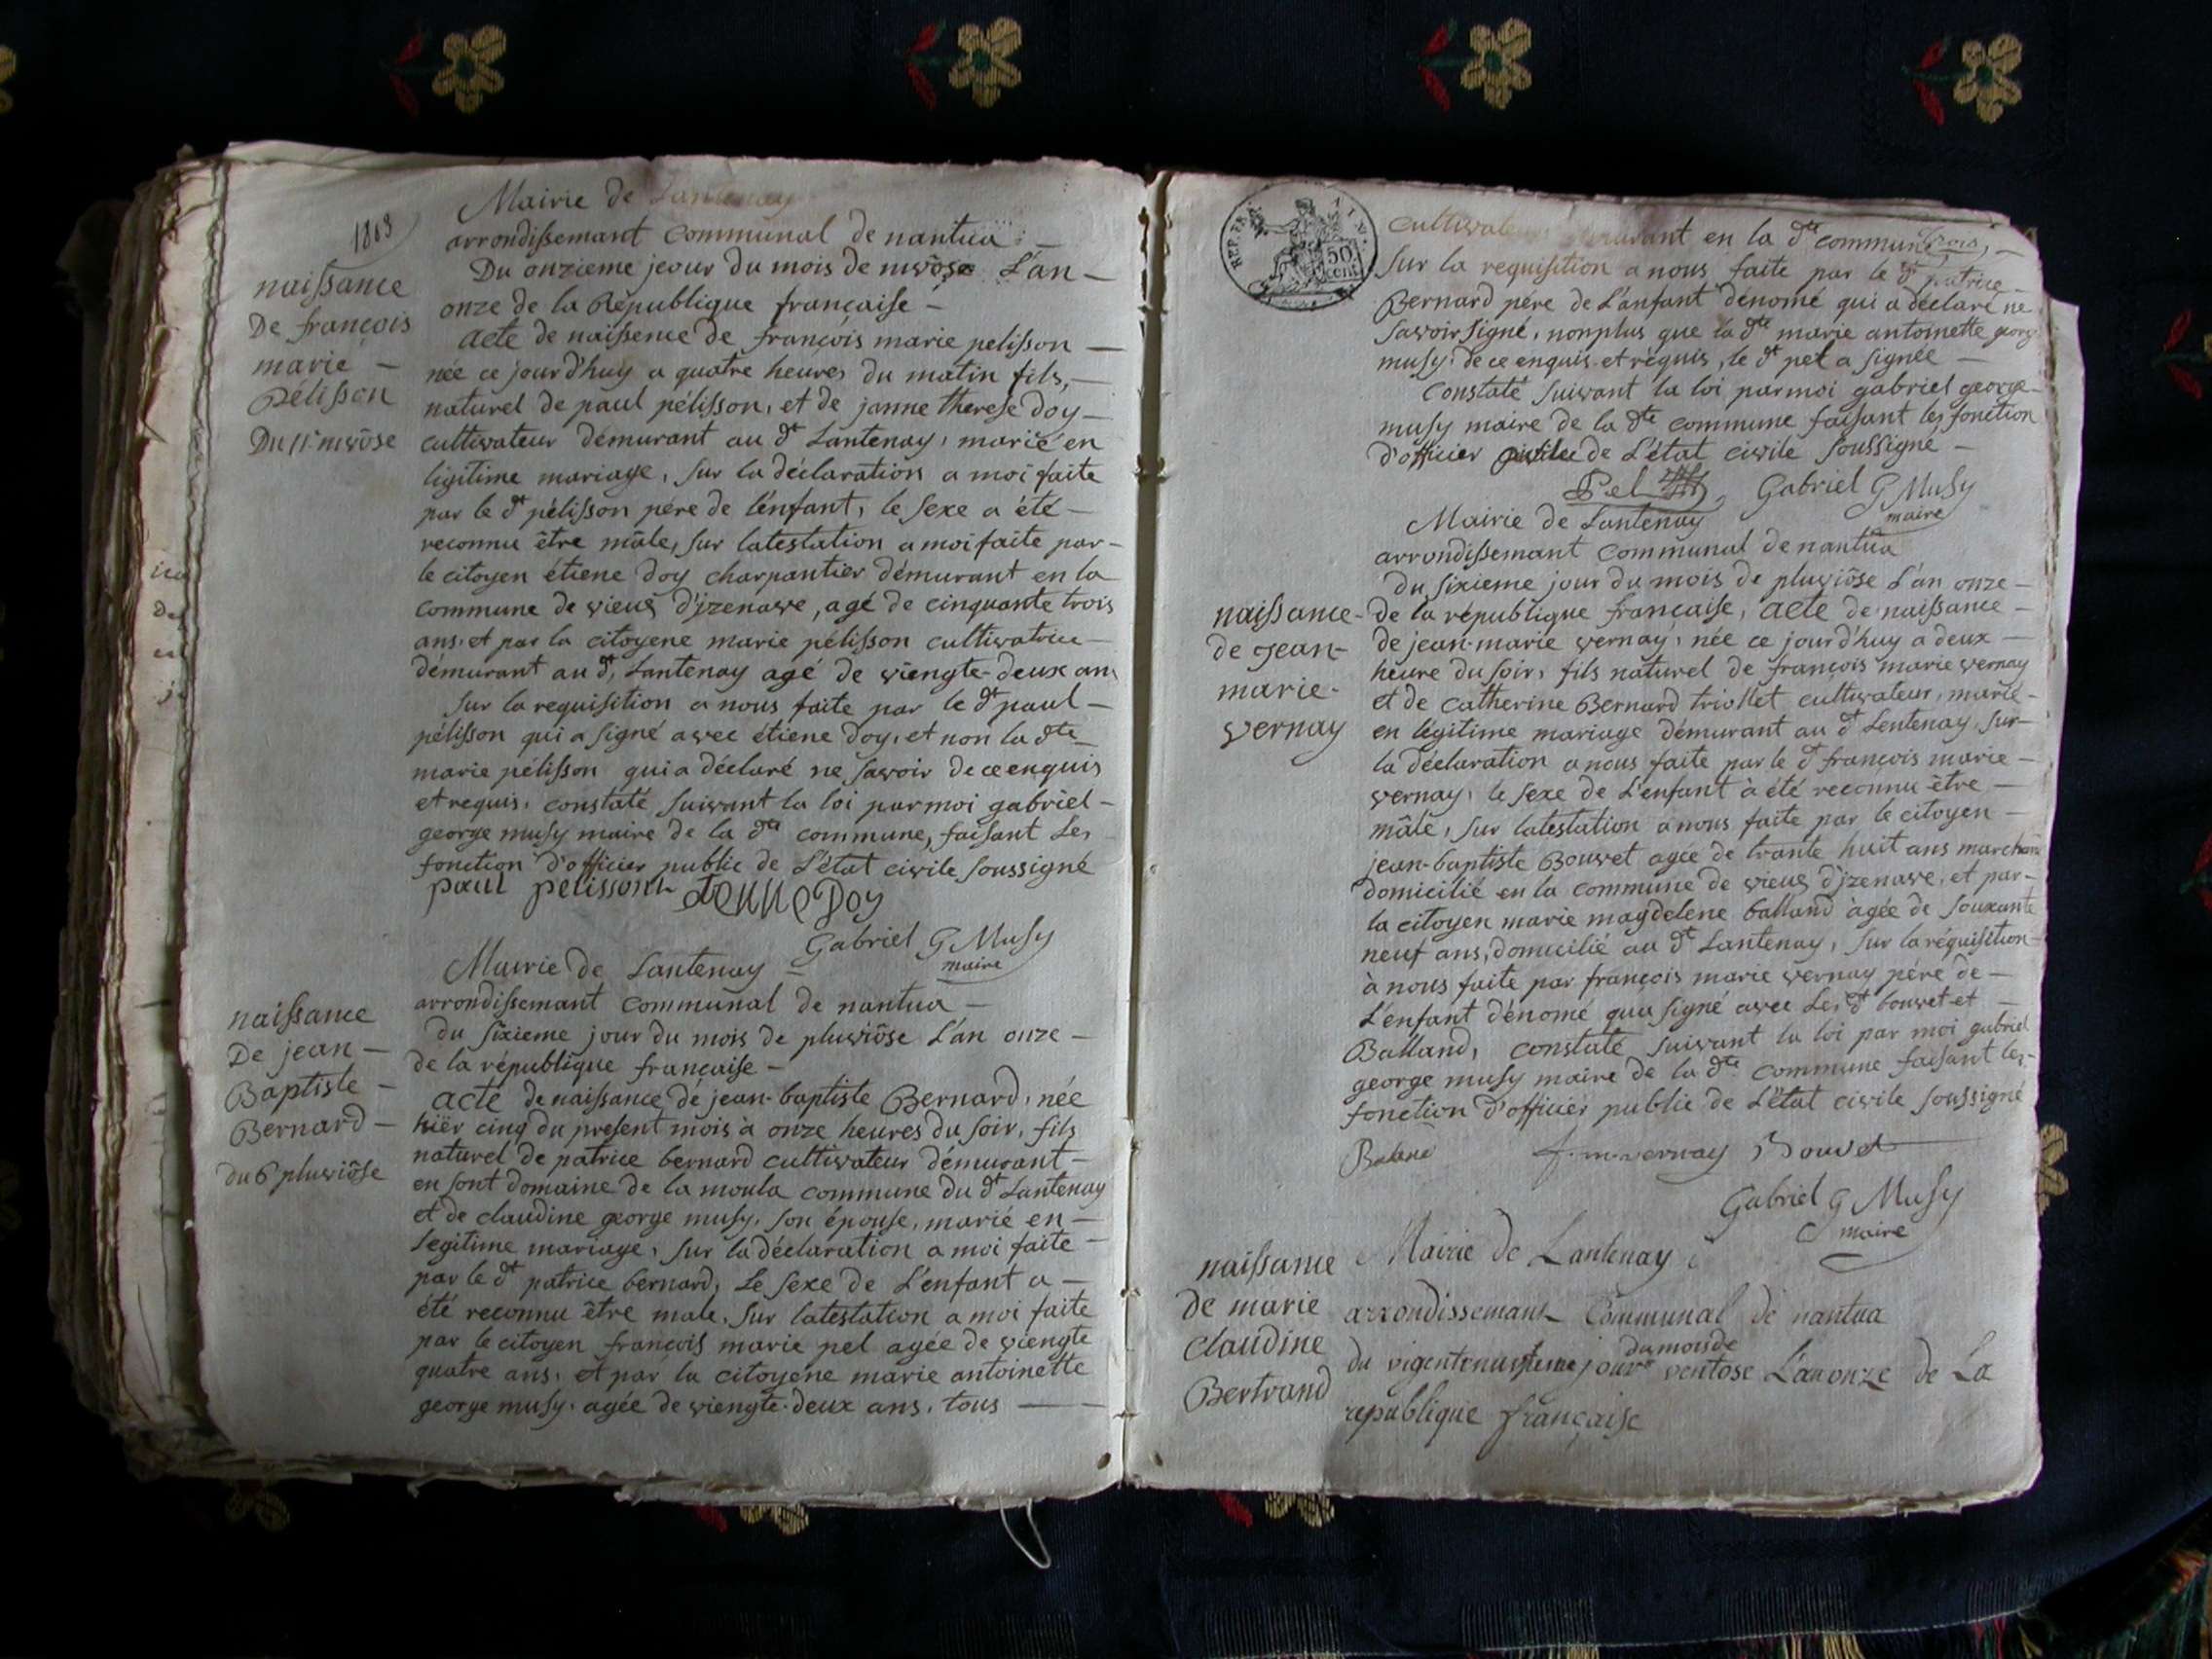 1803
Mairie de Lantenay
arrondissemant communal de nantua
Du onzieme jeour du mois de nivôse L'an
onze de la République francaise
naissance
De françois
marie
Pélisson
Du 11e nivôse
acte de naissence de françois marie pelisson
née ce jourd'huy a quatre heures du matin fils,
naturel de paul pélisson, et de janne therese doy
cultivateur démurant au dt Lantenay, marié en
ligitime mariage, sur la déclaration a moi faite
par le dt pélisson pére de l'enfant, le sexe a été
reconnu être mâle, sur latestation a moi faite par
le citoyen étiene doy charpantier démurant en la
commune de vieux d'izenave, agé de cinquante trois
ans, et par la citoyene marie pélisson cultivatrice
démurant au dt Lantenay agé de viengte-deux ans
sur la requisition a nous faite par le dt paul
pélisson qui a signé avec étiene doy, et non la dte
marie pélisson qui a déclaré ne savoir de ce enquis
et requis, constaté suivant la loi par moi gabriel
george musy maire de la dte commune, faisant Les
fonction d'officier public de L'état civile soussigné
paul pelisson etienne Doy
Gabriel G Musy
maire
Mairie de Lantenay
arrondissemant communal de nantua
du sixieme jour du mois de pluviôse L'an onze
de la république francaise
naissance
De jean
Baptiste
Bernard
du 6 pluviôse
acte de naissance de jean-baptiste Bernard, née
hiër cinq du present mois à onze heures du soir, fils
naturel de patrice bernard cultivateur démurant
en sont domaine de la moula commune du dt Lantenay
et de claudine george musy, son épouse, marié en
legitime mariage, sur la déclaration a moi faite
par le dt patrice bernard, Le sexe de L'enfant a
été reconnu être male, sur latestation a moi faite
par le citoyen francois marie pel agée de viengte
quatre ans, et par la citoyene marie antoinette
george musy, agée de viengte-deux ans, tous
REP. FRA.
50
cent
cultivateurs démurant en la dte commune
sur la requisition a nous faite par le dt patrice
Bernard pére de L'anfant dénomé qui a déclaré ne
savoir signé, nonplus que la dte marie antoinette george
musy, de ce enquis et réquis, le dt pel a signée
Constaté suivant la loi par moi gabriel george
musy maire de la dte commune faisant les fonction
d'officier de L'état civile soussigné
Pel Gabriel G Musy
maire
Mairie de Lantenay
arrondissemant communal de nantua
du sixieme jour du mois de pluviôse L'an onze
naissance
de jean
marie
vernay
de la république francaise, acte de naissance
de jean-marie vernay, née ce jourd'huy a deux
heure du soir, fils naturel de françois marie vernay
et de catherine Bernard triollet cultivateur, marié
en légitime mariage démurant au dt Lentenay, sur
la déclaration a nous faite par le dt françois marie
vernay, le sexe de L'enfant à été reconnu être
mâle, sur latestation a nous faite par le citoyen
jean-baptiste Bouvet agée de trante huit ans marchand
domicilié en la commune de vieux d'izenave, et par
la citoyen marie magdelene balland àgée de souxante
neuf ans, domicilié au dt Lantenay, sur la réquisition
à nous faite par françois marie vernay pére de
L'énfant dénomé qua signé avec Les dt bouvet et
Balland, constaté suivant la loi par moi gabriel
george musy maire de la dte commune faisant les
fonction d'officiér public de L'état civile soussigné
f. m. vernay Bouvet
Gabriel G Musy
maire
naissance
de marie
claudine
Bertrand
Mairie de Lantenay
arrondissemant Communal de nantua
du mois de
du jour ventose L'an onze de La
republique française